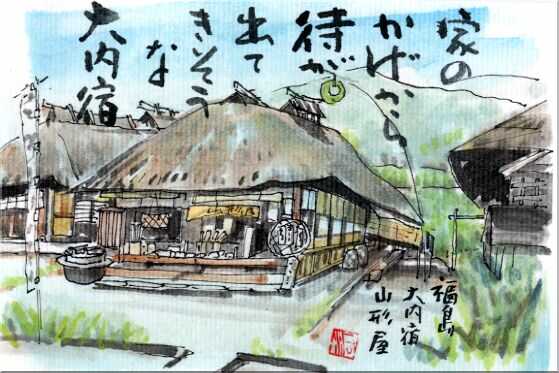 家の
かげから
待が
出て
きそう
な
大内宿
福島
大内宿
山形屋